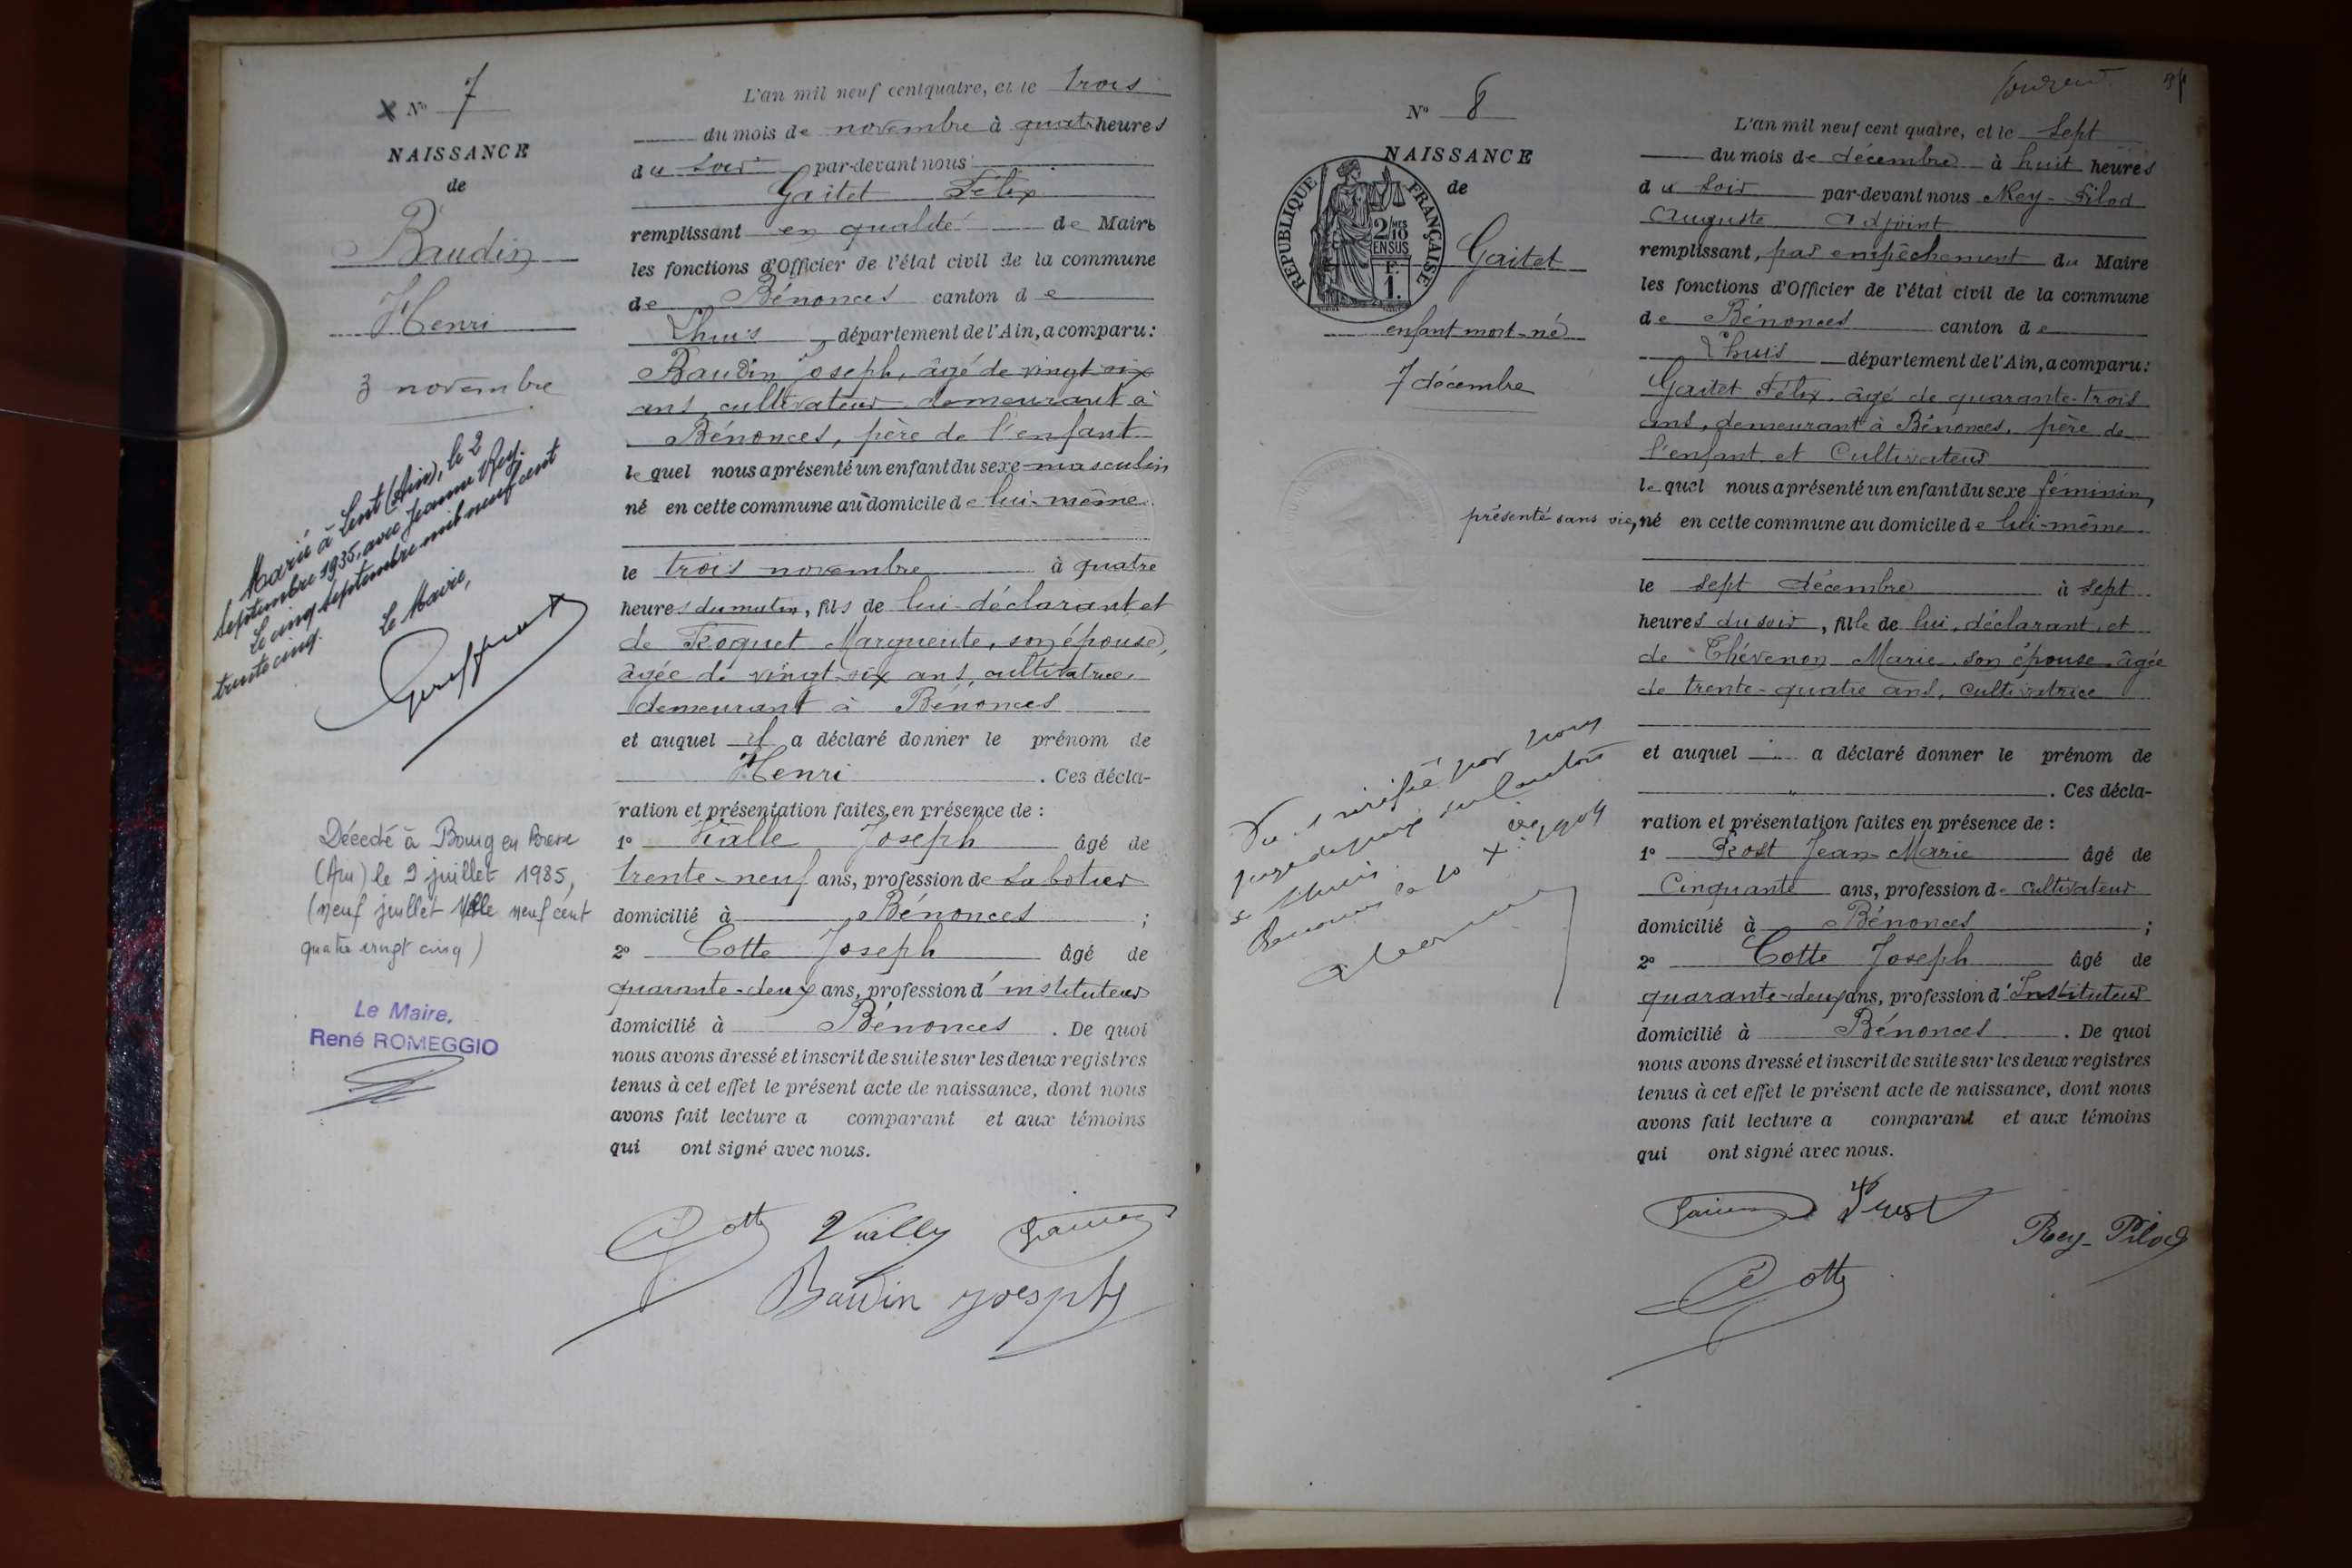 N° 7
NAISSANCE
de
Baudin
Henri
3 novembre
Marié à Lent (Ain), le 2
septembre 1935, avec Jeanne Rey.
Le cinq septembre mil neuf cent
trente cinq.
Le Maire,
Décédé à Bourg en Bresse
(Ain) le 9 juillet 1985,
(neuf juillet mille neuf cent
quatre vingt cinq)
Le Maire,
René ROMEGGIO
L'an mil neuf cent quatre, et le trois
du mois de novembre à quatre heures
du soir par-devant nous
Gaitet Félix
remplissant en qualité de Maire
les fonctions d'Officier de l'état civil de la commune
de Bénonces canton de
Lhuis département de l'Ain, a comparu:
Baudin Joseph, âgé de vingt-six
ans, cultivateur demeurant à
Bénonces, père de l'enfant
lequel nous a présenté un enfant du sexe masculin
né en cette commune au domicile de lui-même
le trois novembre à quatre
heures du matin, fils de lui déclarant et
de Roguet Marguerite, son épouse,
âgée de vingt-six ans, cultivatrice,
demeurant à Bénonces
et auquel il a déclaré donner le prénom de
Henri. Ces décla-
ration et présentation faites en présence de :
1° Vialle Joseph âgé de
trente-neuf ans, profession de sabotier
domicilié à Bénonces ;
2° Cotte Joseph âgé de
quarante-deux ans, profession d'instituteur
domicilié à Bénonces. De quoi
nous avons dressé et inscrit de suite sur les deux registres
tenus à cet effet le présent acte de naissance, dont nous
avons fait lecture a comparant et aux témoins
qui ont signé avec nous.
Cotte
Baudin Joesph
N° 8
NAISSANCE
de
REPUBLIQUE FRANÇAISE
2/10MES
EN SUS
F.
1.
Gaitet
enfant mort-né
7 décembre
Vu et vérifié par nous
juge de paix du canton
de Lhuis.
L'an mil neuf cent quatre, et le sept
du mois de décembre à huit heures
du soir par-devant nous Rey-Pilod
Auguste adjoint
remplissant, par empêchement du Maire
les fonctions d'Officier de l'état civil de la commune
de Bénonces canton de
Lhuis département de l'Ain, a comparu:
Gaitet Félix, âgé de quarante-trois
ans, demeurant à Bénonces, père de
l'enfant et Cultivateur
lequel nous a présenté un enfant du sexe féminin,
présenté sans vie, né en cette commune au domicile de lui-même
le sept décembre à sept
heures du soir, fille de lui, déclarant, et
de Thévenon Marie, son épouse, âgée
de trente-quatre ans, cultivatrice
et auquel a déclaré donner le prénom de
. Ces décla-
ration et présentation faites en présence de :
1° Rost Jean-Marie âgé de
Cinquante ans, profession de cultivateur
domicilié à Bénonces ;
2° Cotte Joseph âgé de
quarante-deux ans, profession d'Instituteur
domicilié à Bénonces. De quoi
nous avons dressé et inscrit de suite sur les deux registres
tenus à cet effet le présent acte de naissance, dont nous
avons fait lecture a comparant et aux témoins
qui ont signé avec nous.
Rey-Pilod
Cotte